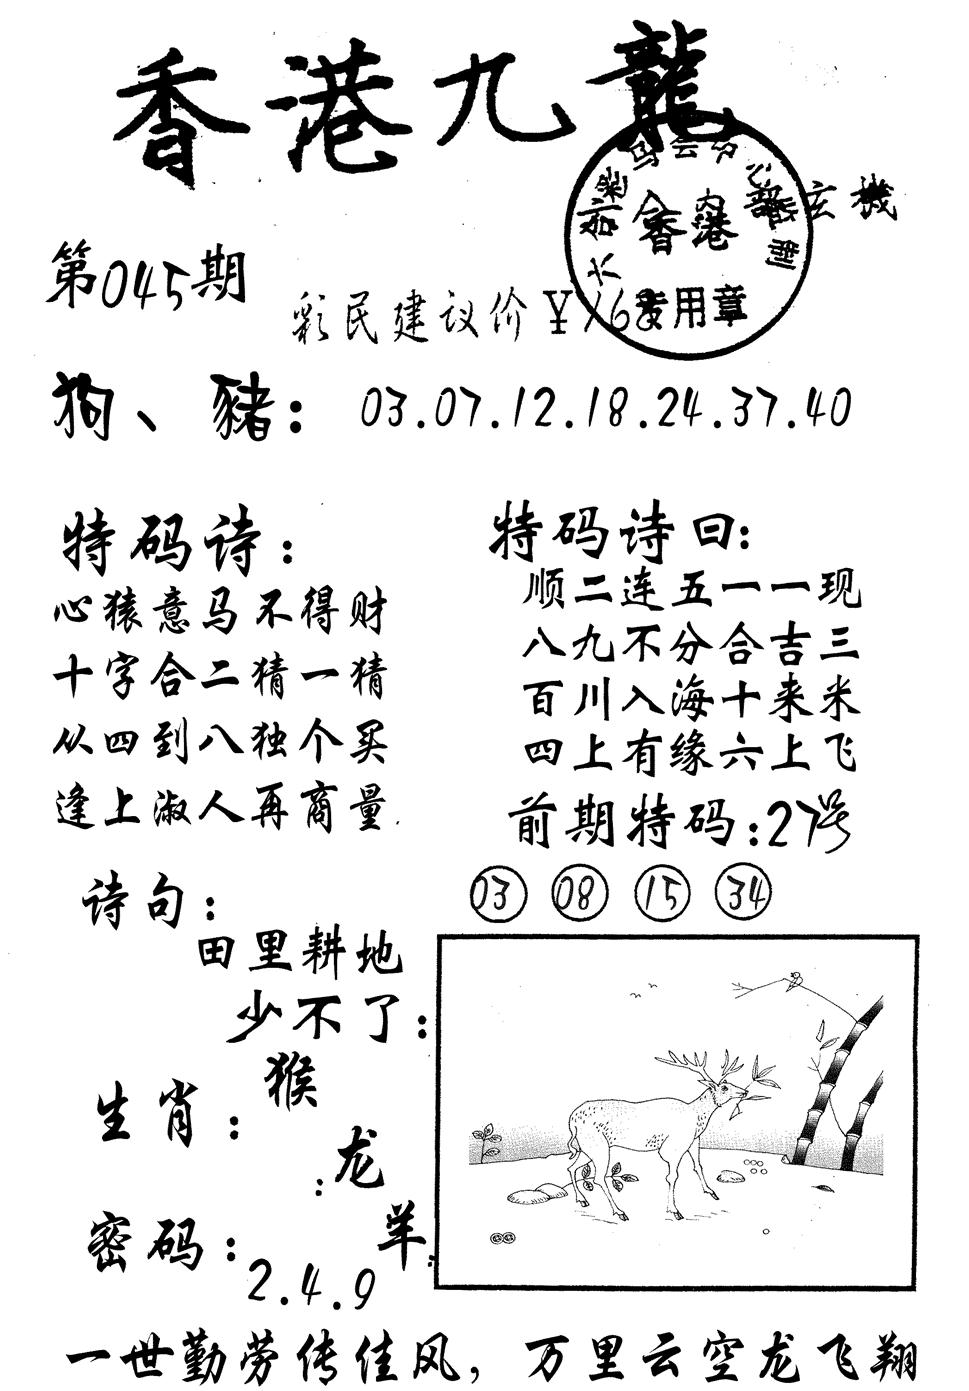 香港九龍
内部玄機
香港
专用章
第045期
彩民建议价￥168
狗、豬：03.07.12.18.24.37.40
特码诗：
心猿意马不得财
十字合二猜一猜
从四到八独个买
逢上淑人再商量.
特码诗曰：
顺二连五一一现
八九不分合吉三
百川入海十来米
四上有缘六上飞
前期特码：27号
03 08 15 34
诗句：
田里耕地
少不了：
生肖：
猴
龙
羊
密码：
2.4.9
一世勤劳传佳风，万里云空龙飞翔